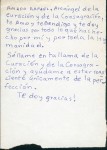 Amado Rafael, Arcángel de la
Curación y de la Consagración,
te Amo y te Bendigo y te doy
gracias por todo lo que has he-
cho por mí y por toda la Hu-
manidad.
Séllame en tu llama de la
Curación y de la Consagra-
ción y ayúdame a estar
alerta de la per-
fección.
TE doy gracias!